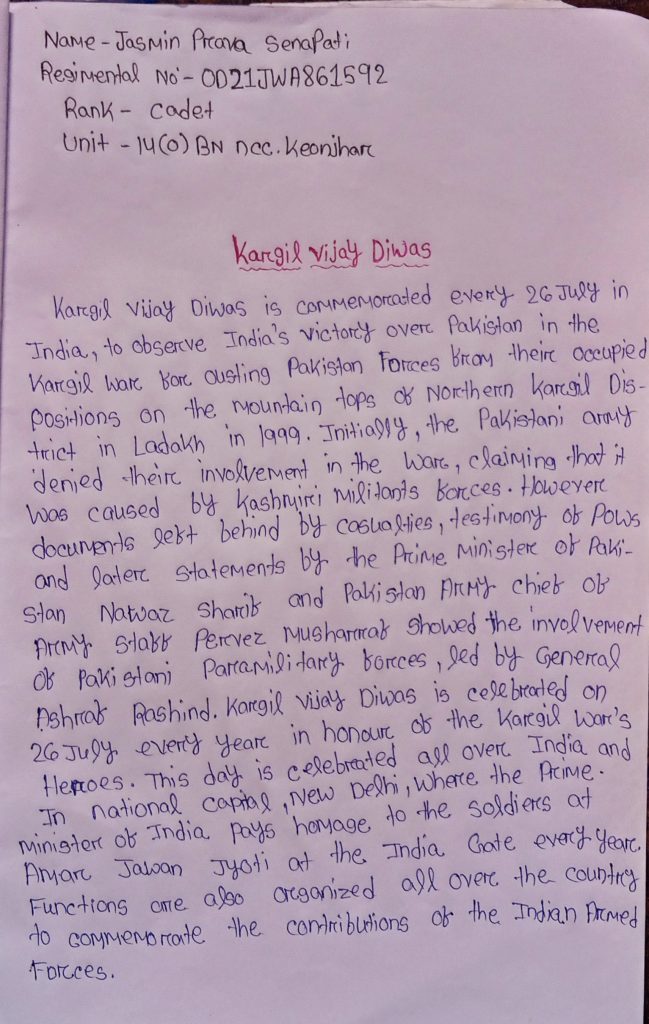 Name - Jasmin Prava Senapati
Regimental No - OD21JWA861592
Rank - Cadet
Unit - 14(O) BN ncc. Keonjhar
Kargil Vijay Diwas
Kargil Vijay Diwas is commemorated every 26 July in
India, to observe India's victory over Pakistan in the
Kargil War for ousting Pakistan Forces from their occupied
positions on the mountain tops of Northern Kargil Dis-
trict in Ladakh in 1999. Initially, the Pakistani army
denied their involvement in the War, claiming that it
was caused by Kashmiri militants forces. However
documents left behind by casualties, testimony of POWs
and later statements by the Prime Minister of Paki-
stan Nawaz Sharif and Pakistan Army chief of
Army Staff Pervez Musharraf showed the involvement
of Pakistani Parramilitary forces, led by General
Ashraf Rashind. Kargil Vijay Diwas is celebrated on
26 July every year in honour of the Kargil War's
Heroes. This day is celebrated all over India and
In national capital, New Delhi, Where the Prime.
minister of India pays homage to the soldiers at
Amar Jawan Jyoti at the India Gate every year.
Functions are also organized all over the country
to commemorate the contributions of the Indian Armed
Forces.